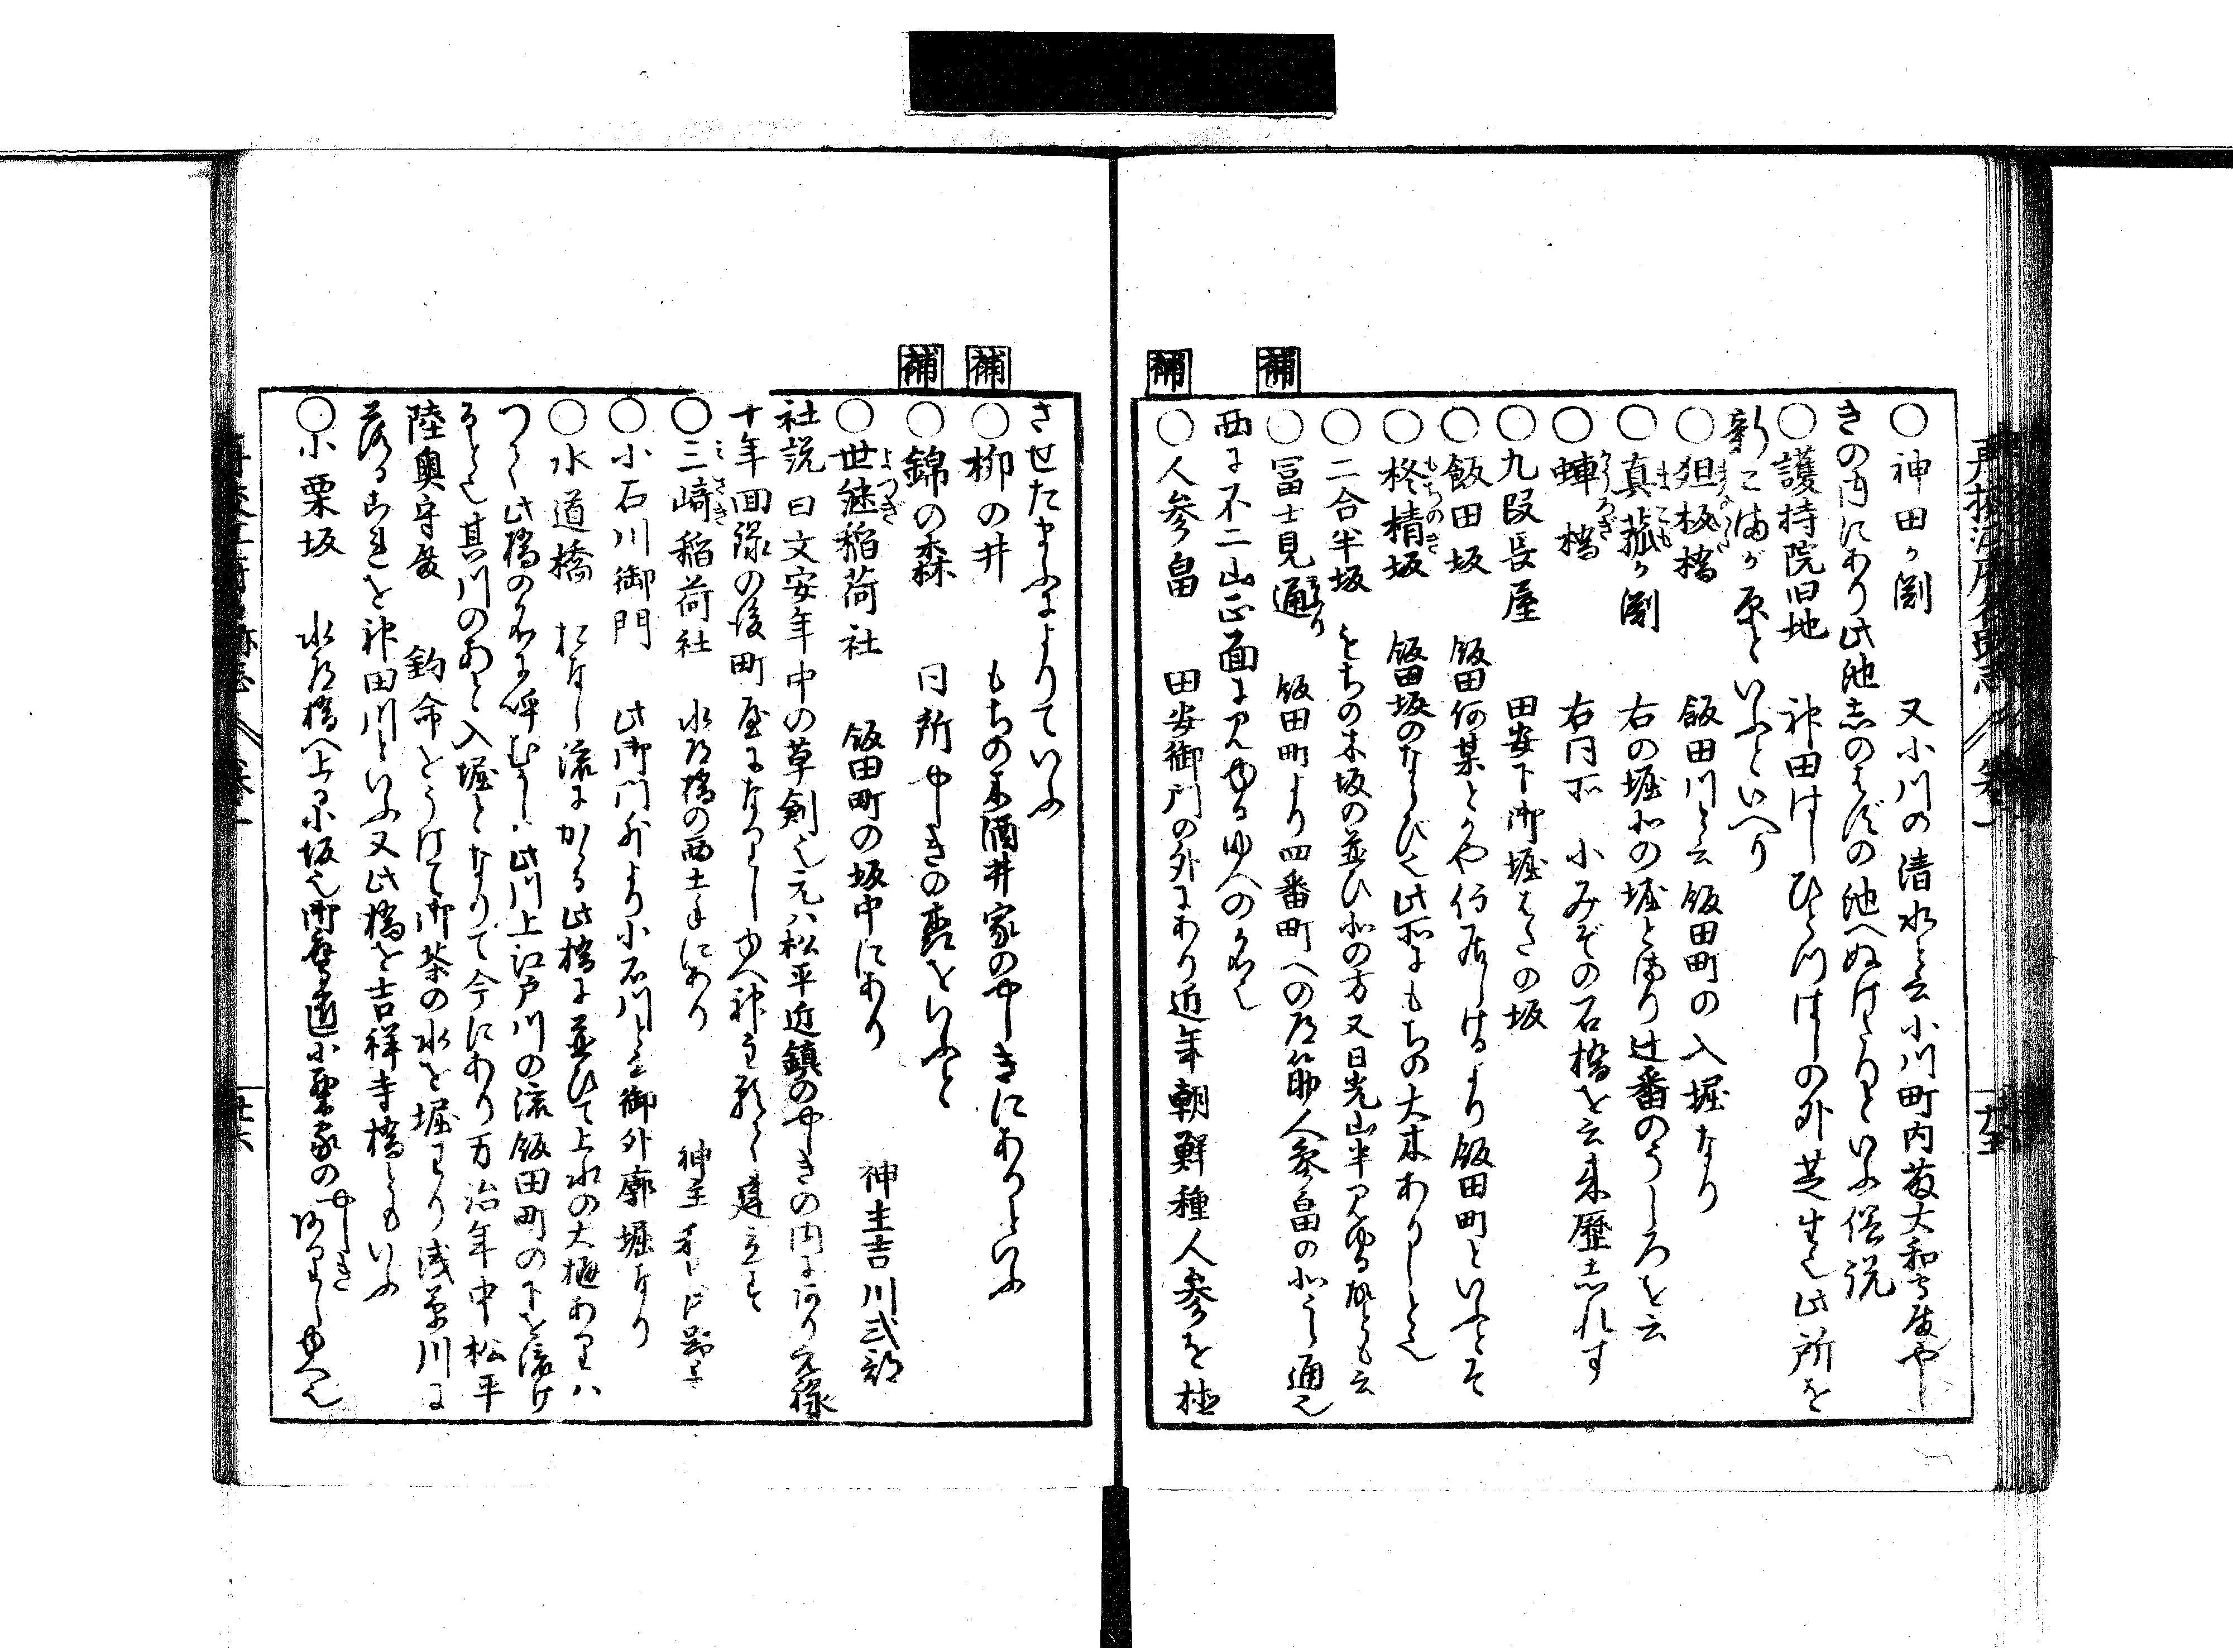 ○神田ヶ渕　又小川の清水と云小川町内藤大和守殿やし
きの内にあり此池しのはずの池へぬけたりといふ俗説
○護持院旧地　神田はしひとつはしの外芝生也此所を
新二番が原といふといへり
○爼板橋　飯田川と云飯田町の入堀なり
○真菰ヶ渕　右の堀北の堀と海り辻番のうしろを云
○蛼橋　右同所　小みぞの石橋を云来歴志れす
○九段長屋　田安下御堀はたの坂
○飯田坂　飯田何某とかや住居しけるより飯田町といふとそ
○柊精坂　飯田坂のならびて此所にもちの大木ありしと也
○二合半坂　もちの木坂の並ひ北の方又日光山半みゆる故とも云
補○冨士見通　飯田町より四番町への道筋人参畠の北うら通也
西に不二山正面にみゆるゆへの名也
補○人参畠　田安御門の外にあり近年朝鮮種人参を植
させたまふによりていふ
補○柳の井　もちの木酒井家のやしきにありといふ
補○錦の森　同所やしきの裏をいふと
○世継稲荷社　飯田町の坂中にあり　神主吉川式部
社説曰文安年中の草創也元ハ松平近鎮のやしきの内にあり元禄
十年回禄の後町屋になりしゆへ神主願て建立す
○三崎稲荷社　水道橋の西土手にあり　神主
○小石川御門　此御門外より小石川と云御外廓堀なり
○水道橋　おなし流にかゝる此橋に並ひて上水の大樋あり
つゝく此橋の名に呼むかしハ此川上江戸川の流飯田町の下を流け
ると也其川のあと入堀となりて今にあり万治年中松平
陸奥守殿　鈞命をうけて御茶の水を堀わり浅草川に
落るこれを神田川といふ又此橋を吉祥寺橋ともいふ
○小栗坂　水道橋へ上る小坂也小栗家のやしきありしゆへ也